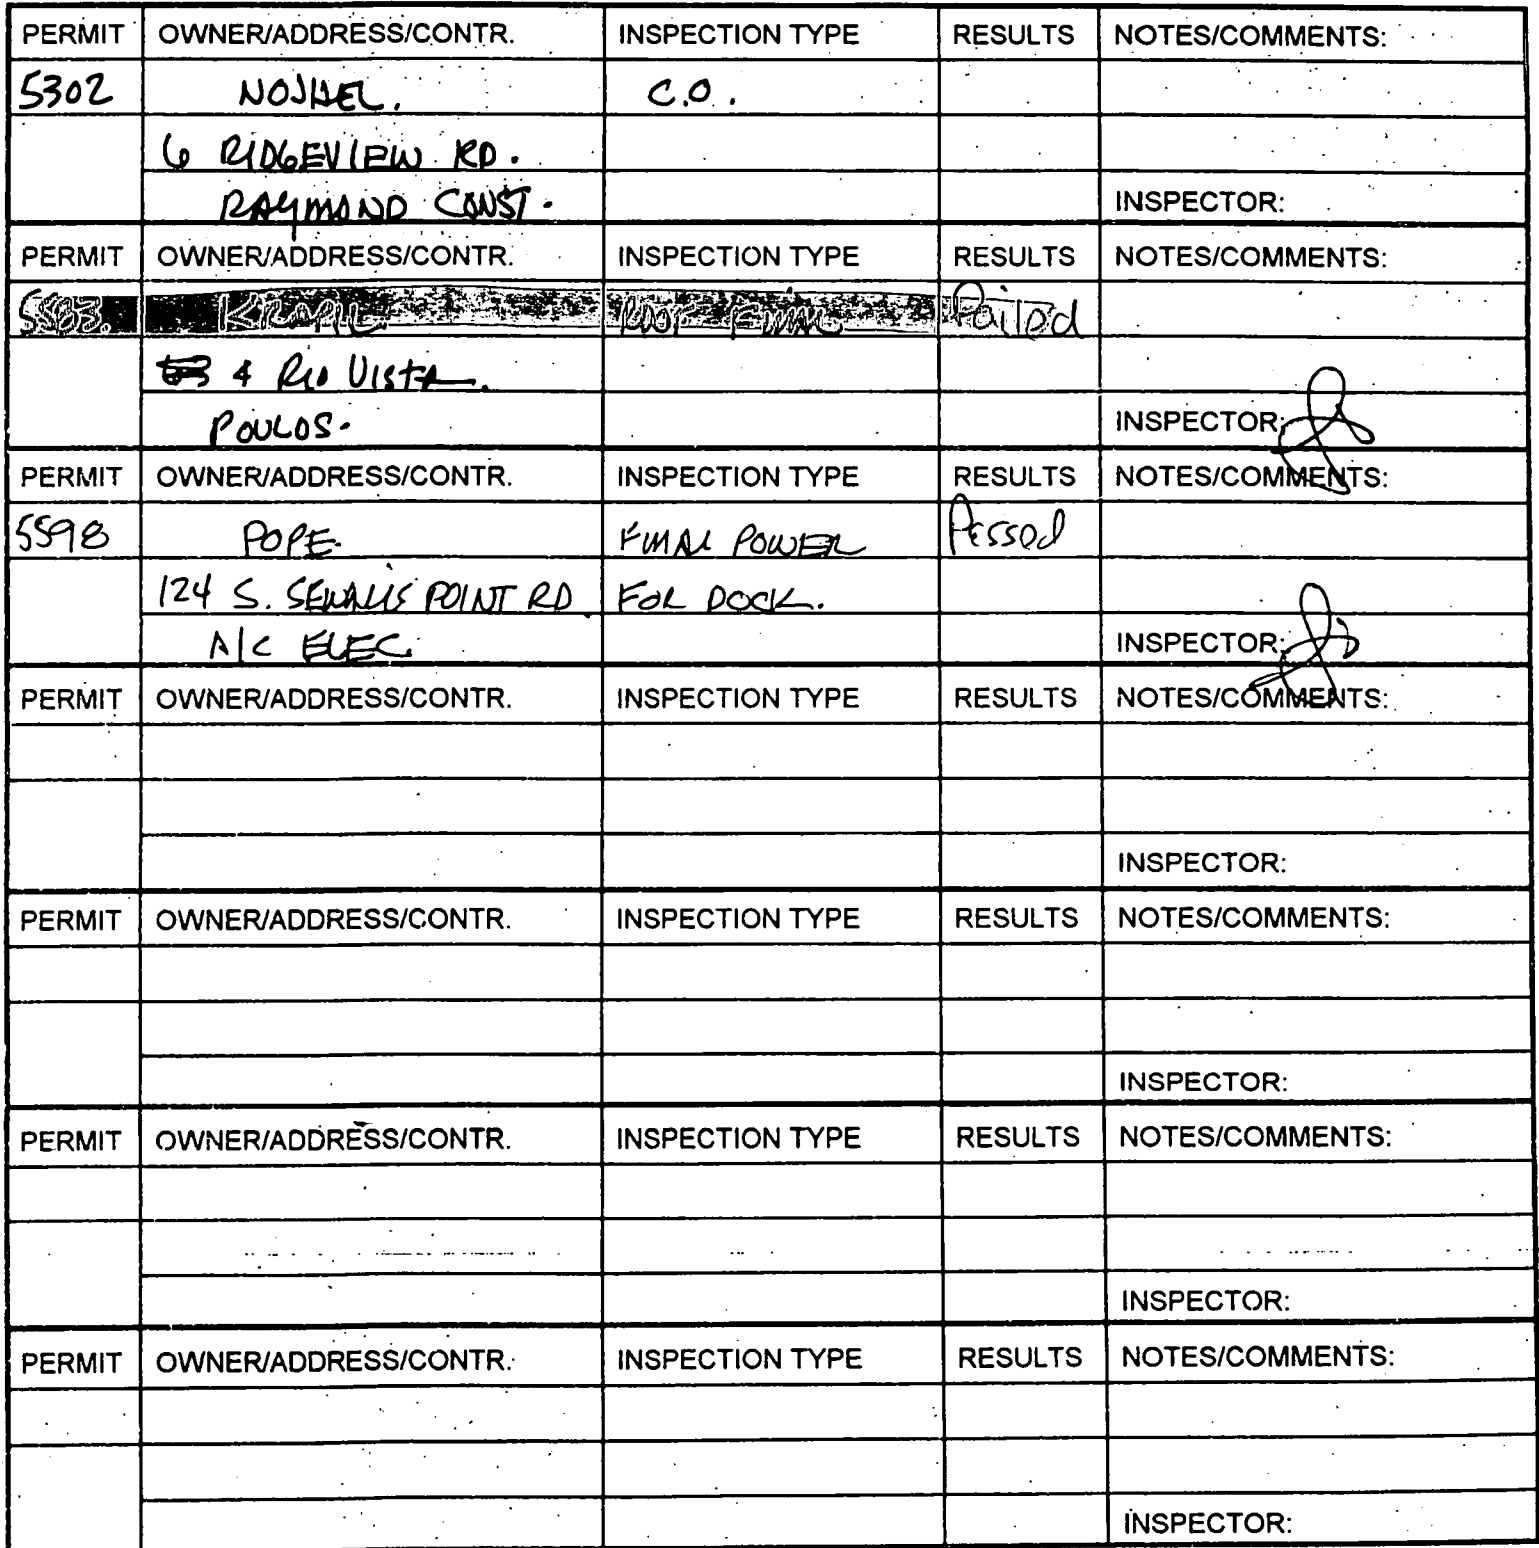 PERMIT OWNER/ADDRESS/CONTR. INSPECTION TYPE RESULTS NOTES/COMMENTS:
5302 C.O.
6 RIDGEVIEW RD.
RAYMOND CONST. INSPECTOR:
PERMIT OWNER/ADDRESS/CONTR. INSPECTION TYPE RESULTS NOTES/COMMENTS:
FINAL Failed
4 RIO VISTA.
POULOS. INSPECTOR:
PERMIT OWNER/ADDRESS/CONTR. INSPECTION TYPE RESULTS NOTES/COMMENTS:
5598 POPE FINAL POWER Passed
124 S. SEWALLS POINT RD FOR DOCK.
A/C ELEC. INSPECTOR:
PERMIT OWNER/ADDRESS/CONTR. INSPECTION TYPE RESULTS NOTES/COMMENTS:
INSPECTOR:
PERMIT OWNER/ADDRESS/CONTR. INSPECTION TYPE RESULTS NOTES/COMMENTS:
INSPECTOR:
PERMIT OWNER/ADDRESS/CONTR. INSPECTION TYPE RESULTS NOTES/COMMENTS:
INSPECTOR:
PERMIT OWNER/ADDRESS/CONTR. INSPECTION TYPE RESULTS NOTES/COMMENTS:
INSPECTOR: